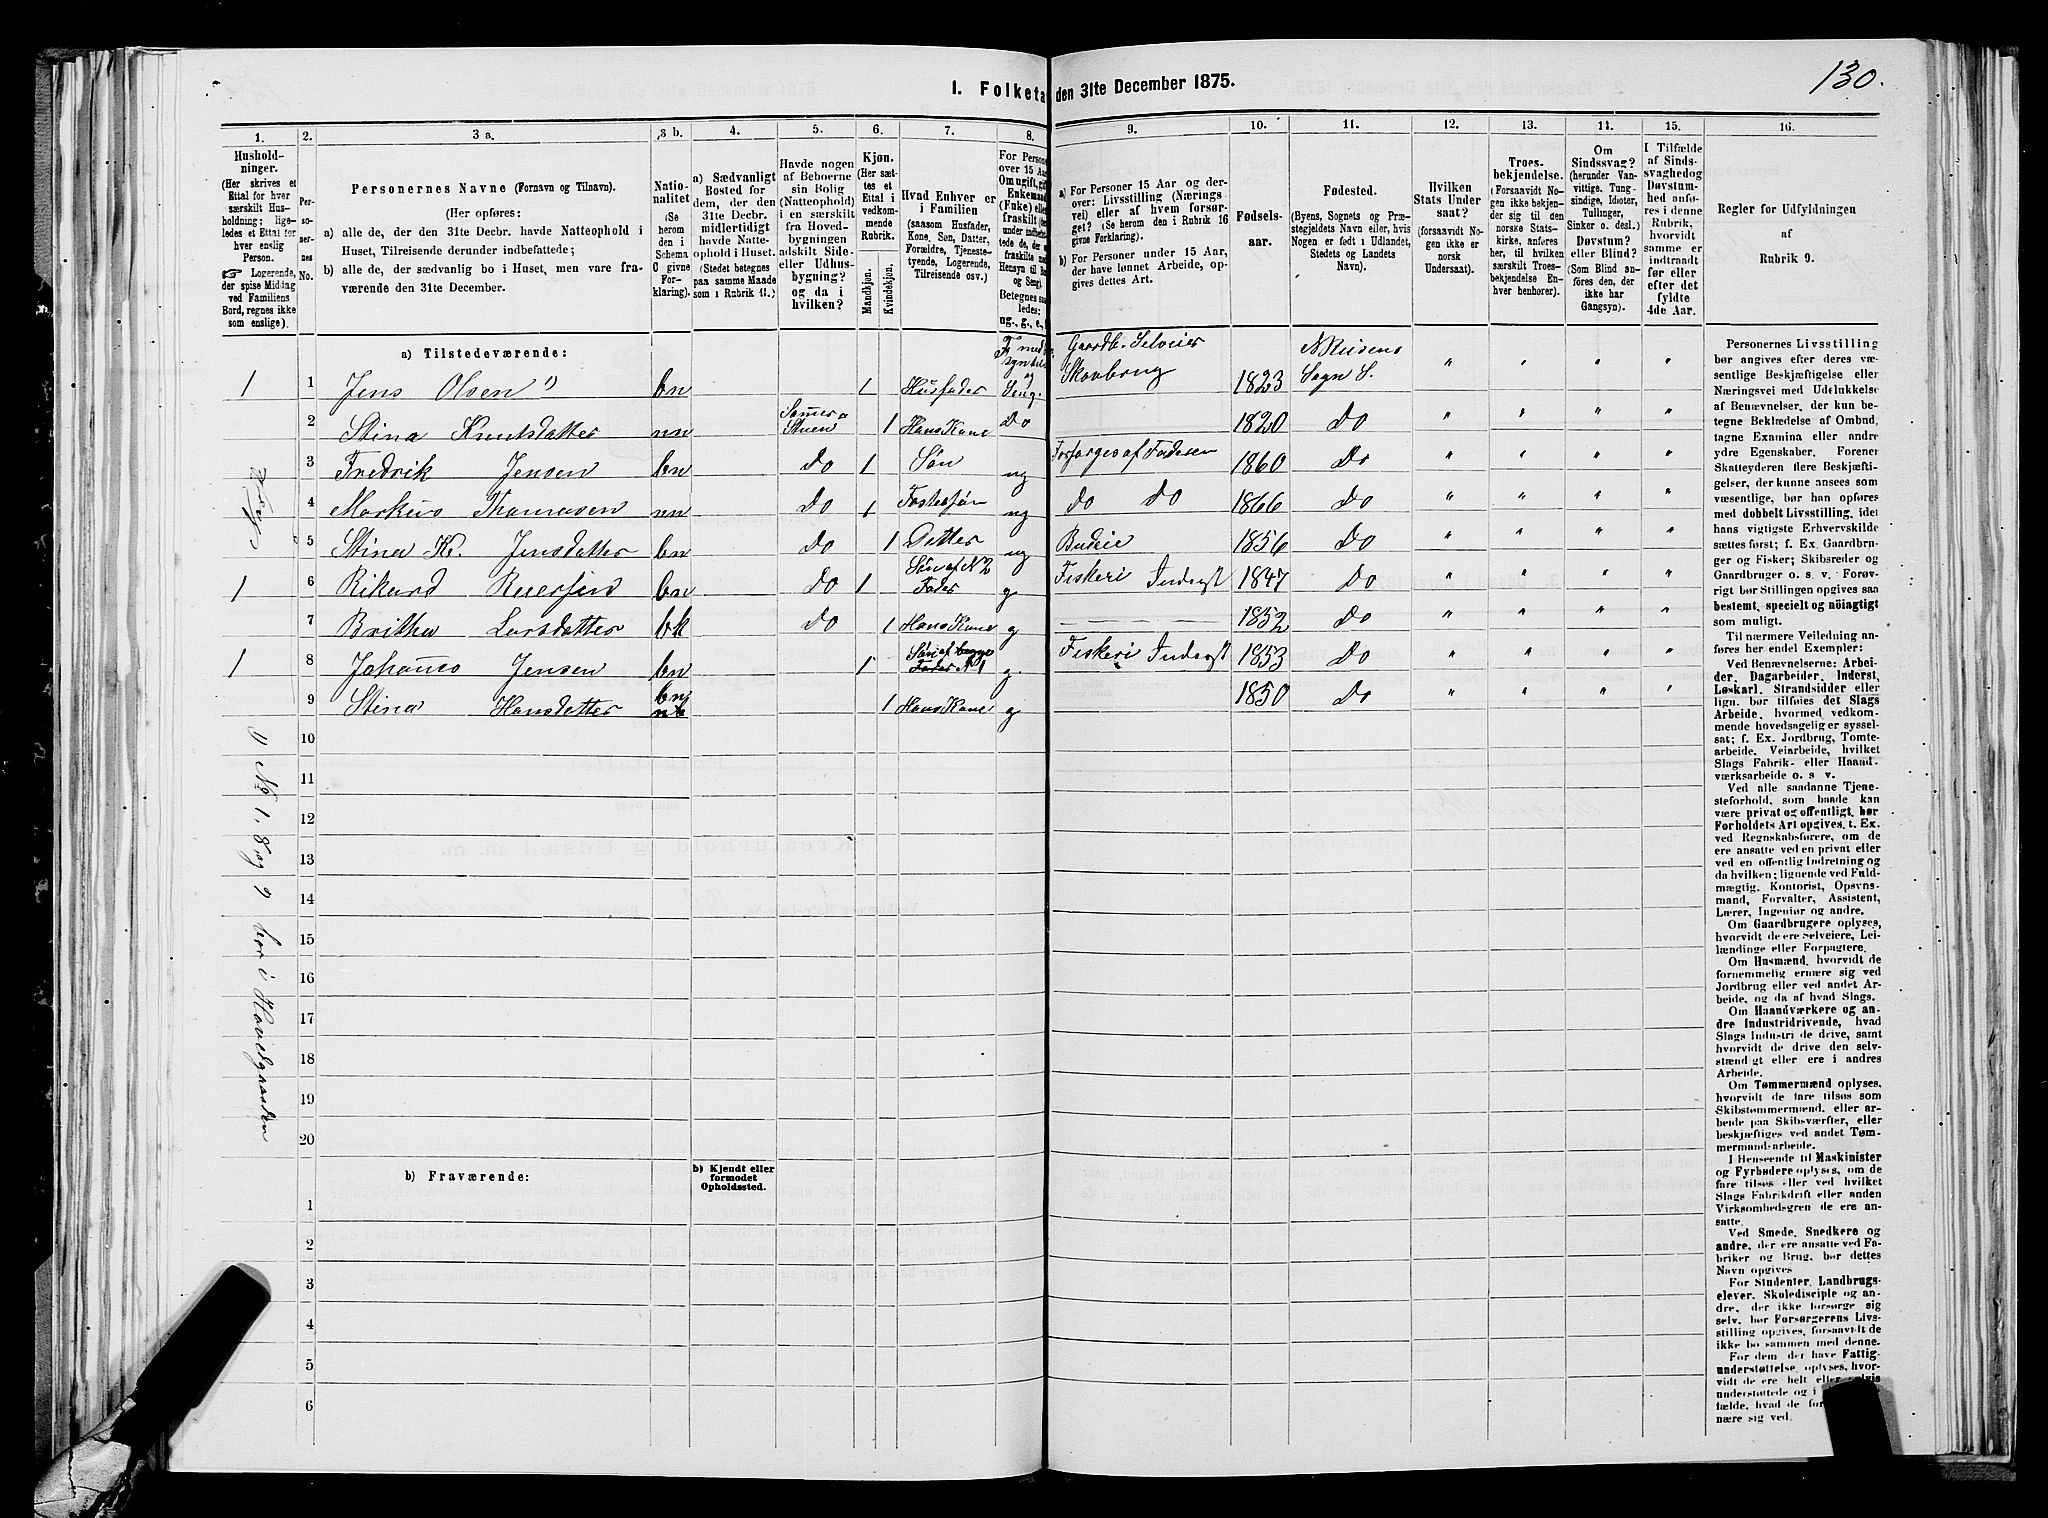 130.
I. Folketa den 31te December 1875.
1. 2. 3 a. 3 b. 4. 5. 6. 7. 8. 9. 10. 11. 12. 13. 14. 15. 16.
Hushold-
ninger.
(Her skrives et
Ettal for hver
særskilt Hus-
holdning; lige-
ledes et Ettal for
hver enslig
Person.
☞ Logerende,
der spise Middag
ved Familiens
Bord, regnes ikke
som enslige).
Per-
so-
ner-
nes
No.
Personernes Navne (Fornavn og Tilnavn).
(Her opføres:
a) alle de, der den 31te Decbr. havde Natteophold i
Huset, Tilreisende derunder indbefattede;
b) alle de, der sædvanlig bo i Huset, men vare fra-
værende den 31te December.
Natio-
nalitet
(Se
herom
den i
Schema
O givne
For-
klaring).
a) Sædvanligt
Bosted for
dem, der den
31te Decbr.
midlertidigt
havde Natte-
ophold i Huset.
(Stedet betegnes
paa samme Maade
som i Rubrik 11.)
Havde nogen
af Beboerne
sin Bolig
(Natteophold)
i en særskilt
fra Hoved-
bygningen
adskilt Side-
eller Udhus-
bygning?
og da i
hvilken?
Kjøn.
(Her sæt-
tes et
Ettal i
vedkom-
mende
Rubrik.
Mandkjøn.
Kvindekjøn.
Hvad Enhver er
i Familien
(saasom Husfader,
Kone, Søn, Datter,
Forældre, Tjeneste-
tyende, Logerende,
Tilreisende osv.)
For Personer
over 15 Aar
Om ugift, gift,
Enkemand
(Enke) eller
fraskilt
Betegnes saa-
ledes:
ug., g., e.,
a) For Personer 15 Aar og der-
over: Livsstilling (Nærings-
vei) eller af hvem forsør-
get? (Se herom den i Rubrik 16
givne Forklaring).
b) For Personer under 15 Aar,
der have lønnet Arbeide, op-
gives dettes Art.
Fødsels-
aar.
Fødested.
(Byens, Sognets og Præ-
stegjeldets Navn eller, hvis
Nogen er født i Udlandet,
Stedets og Landets
Navn).
Hvilken
Stats Under
saat?
(forsaavidt No-
gen ikke er
norsk
Undersaat).
Troes-
bekjendelse.
(Forsaavidt No-
gen ikke bekjen-
der sig til den
norske Stats-
kirke, anføres
her, til hvilken
særskilt Troes-
bekjendelse En-
hver henhører).
Om
Sindssvag?
(herunder Van-
vittige, Tung-
sindige, Idioter,
Tullinger,
Sinker o. desl.)
Døvstum?
eller Blind?
(Som Blind an-
føres den, der
ikke har
Gangsyn).
I Tilfælde
af Sinds-
svaghed og
Døvstum-
hed anfø-
res i denne
Rubrik,
hvorvidt
samme er
indtraadt
før eller
efter det
fyldte
4de Aar.
Regler for Udfyldningen
af
Rubrik 9.
a) Tilstedeværende:
1 1 Jens Olsen 1) bn 1 Husfader Gaardb. Selveier Skovbrug 1823 Sogn S. " " " "
2 Stina Knutsdatter nn Stuen 1 Hans Kone Do 1820 Do " " " "
3 Fredrik Jensen bn Do 1 Søn ug Forsørges af Faderen 1860 Do " " " "
4 Markus Thomasen nn Do 1 Fostersøn ug Do Do 1866 Do " " " "
5 Stina K. Jensdatter bn Do 1 Datter ug Budeie 1856 Do " " " "
1 6 Rikard Reiersen bn Do 1 Søn af N 2 Fader g Fiskeri Inderst 1847 Do " " " "
7 Britha Larsdatter bk Do 1 Hans Kone g 1852 Do " " " "
1 8 Johannes Jensen bn 1 Søn af begge Fader N 1 g. Fiskeri Inderst 1853 Do " " " "
9 Stina Hansdatter bn 1 Hans Kone g 1850 Do " " " "
10
11
12
13
14
15
16
17
18
19
20
1) No 1, 8 og 9 bor i Hovedgaarden
b) Fraværende:
b) Kjendt eller
formodet
Opholdssted.
1
2
3
4
5
6
Personernes Livsstilling
bør angives efter deres væ-
sentlige Beskjæftigelse eller
Næringsvei med Udelukkelse
af Benævnelser, der kun be-
tegne Beklædelse af Ombud,
tagne Examina eller andre
ydre Egenskaber. Forener
Skatteyderen flere Beskjæfti-
gelser, der kunne ansees som
væsentlige, bør han opføres
med dobbelt Livsstilling, idet
hans vigtigste Erhvervskilde
sættes først; f. Ex. Gaardbru-
ger og Fisker; Skibsreder og
Gaardbruger o. s. v. Forøv-
rigt bør Stillingen opgives saa
bestemt, specielt og nöiagtigt
som muligt.
Til nærmere Veiledning an-
føres her endel Exempler:
Ved Benævnelserne: Arbei-
der, Dagarbeider, Inderst,
Løskarl, Strandsidder eller
lign. bør tilføies det Slags
Arbeide, hvormed vedkom-
mende hovedsagelig er syssel-
sat; f. Ex. Jordbrug, Tomte-
arbeide, Veiarbeide, hvilket
Slags Fabrik- eller Haand-
værksarbeide o. s. v.
Ved alle saadanne Tjene-
steforhold, som baade kan
være privat og offentligt, bør
Forholdets Art opgives, t. Ex.
ved Regnskabsførere, om de
ere ansatte ved en privat eller
ved en offentlig Indretning og
da hvilken; lignende ved Fuld-
mægtig, Kontorist, Opsyns-
mand, Forvalter, Assistent,
Lærer, Ingeniør og andre.
Om Gaardbrugere oplyses,
hvorvidt de ere Selveiere, Lei-
lændinge eller Forpagtere.
Om Husmænd, hvorvidt de
fornemmelig ernære sig ved
Jordbrug eller ved andet Ar-
beide, og da af hvad Slags.
Om Haandværkere og an-
dre Industridrivende, hvad
Slags Industri de drive, samt
hvorvidt de drive den selv-
stændigt eller ere i andres
Arbeide.
Om Tømmermænd oplyses,
hvorvidt de fare tilsøs som
Skibstømmermænd, eller ar-
beide paa Skibsværfter, eller
beskjæftiges ved andet Tøm-
mermandsarbeide.
I Henseende til Maskinister
og Fyrbødere oplyses, om de
fare tilsøs eller ved hvilket
Slags Fabrikdrift eller anden
Virksomhedsgren de ere an-
satte.
Ved Smede, Snedkere og
andre, der ere ansatte ved Fa-
briker og Brug, bør dettes
Navn opgives
For Studenter, Landbrugs-
elever, Skoledisciple og an-
dre, der ikke forsørge sig
selv, bør Forsørgerens Livs-
stilling opgives, forsaavidt de
ikke bo sammen med denne.
For dem, der have Fattig-
understøttelse, oplyses, hvor-
vidt de ere helt eller delvis
understøttede og i
fælde, hvad de for
nære sig ved.